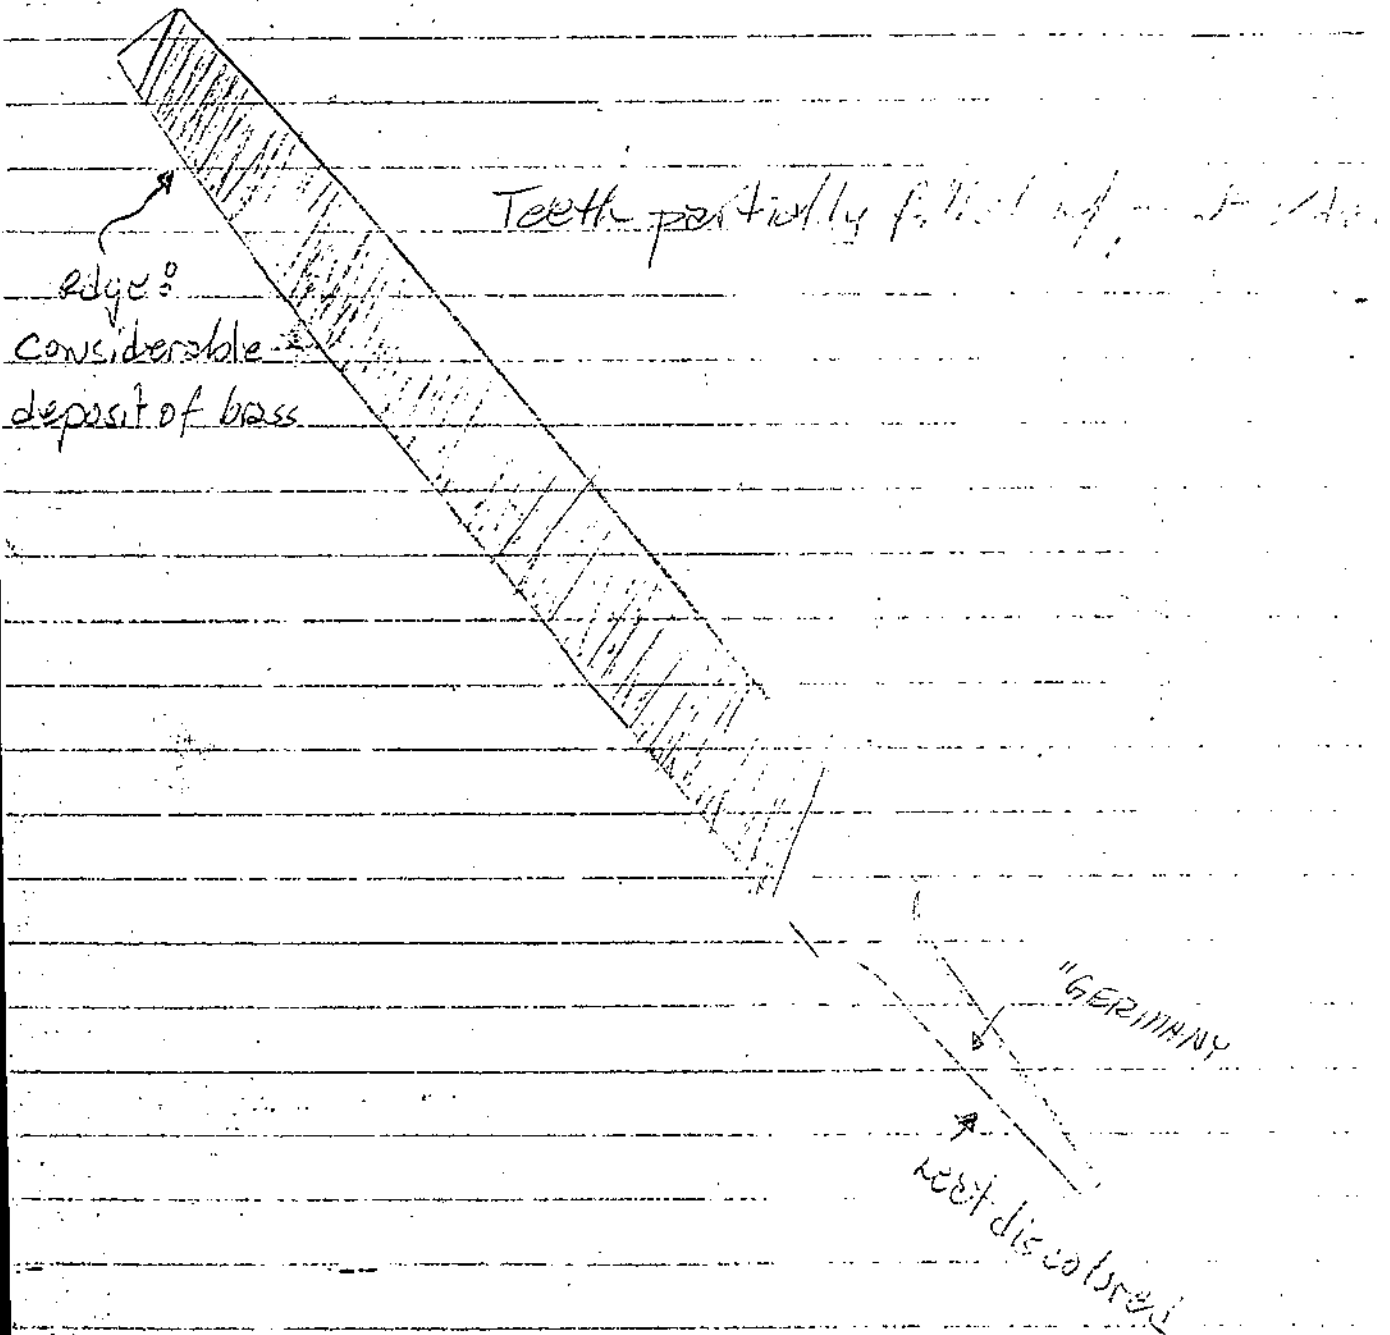 Teeth partially filled w/
edge:
considerable
deposit of brass
"GERMANY
heat discolored